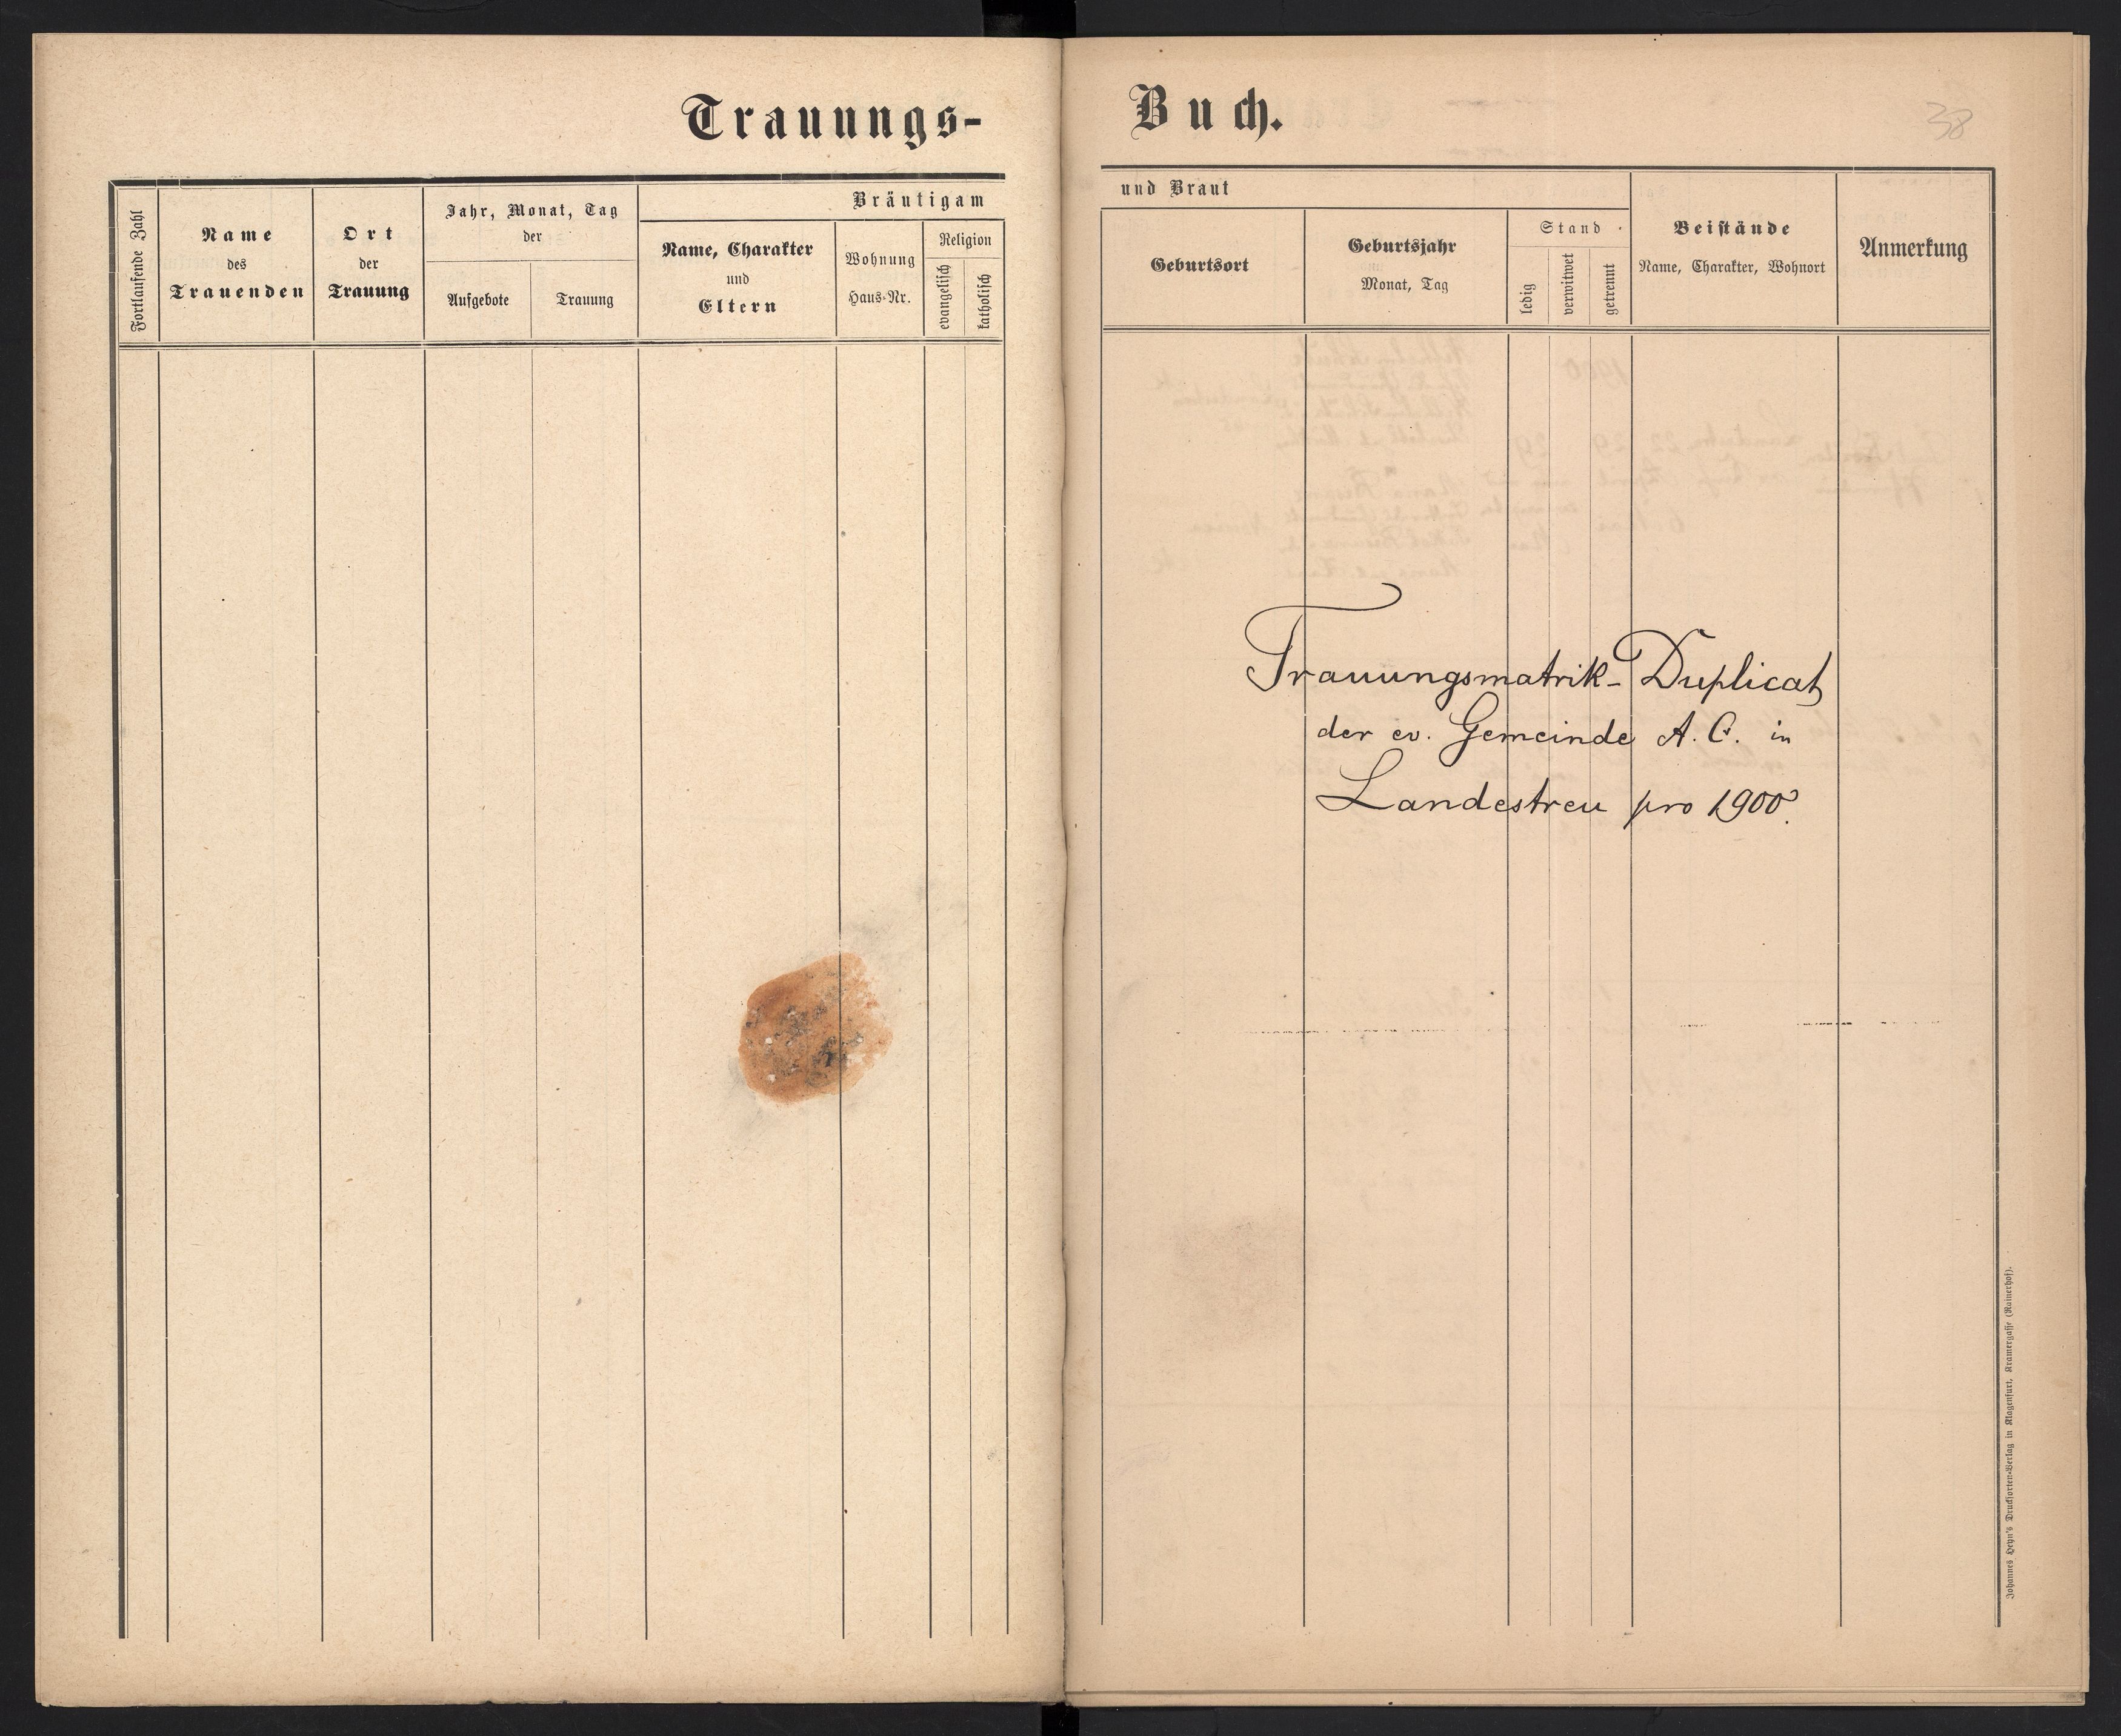 Trauungs-
Fortlaufende Zahl
Name
des
Trauenden
Ort
der
Trauung
Jahr, Monat, Tag
der
Aufgebote
Trauung
Bräutigam
Name, Charakter
und
Eltern
Wohnung
Haus-Nr.
Religion
evangelisch
katholisch
Buch.
38
und Braut
Geburtsort
Geburtsjahr
Monat, Tag
Stand
ledig
verwitwet
getrennt
Beistände
Name, Charakter, Wohnort
Anmerkung
Trauungsmatrik-Duplicat
der ev. Gemeinde A. C. in
Landestreu pro 1900.
Johannes Heyn's Drucksorten-Verlag in Klagenfurt, Kramergasse (Rainerhof).